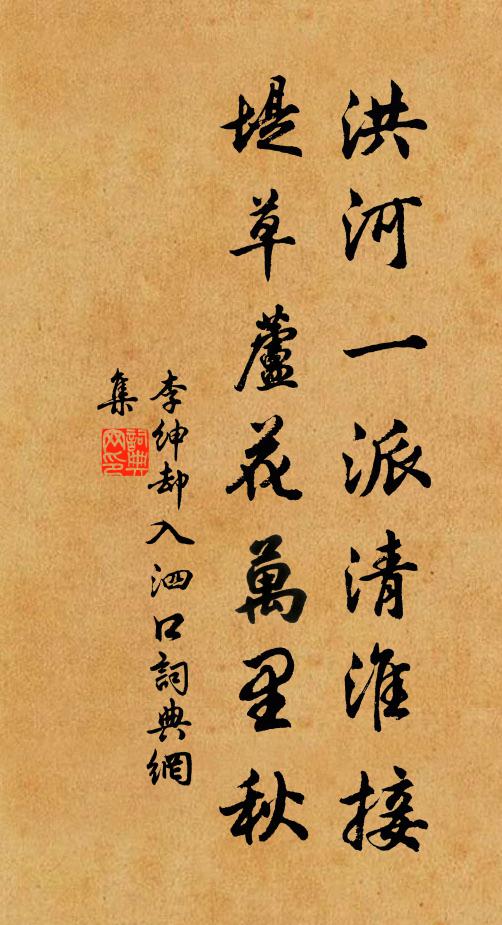 洪河一派清淮接
堤草蘆花萬里秋
李紳却入泗口詞典網
集
詞典網印